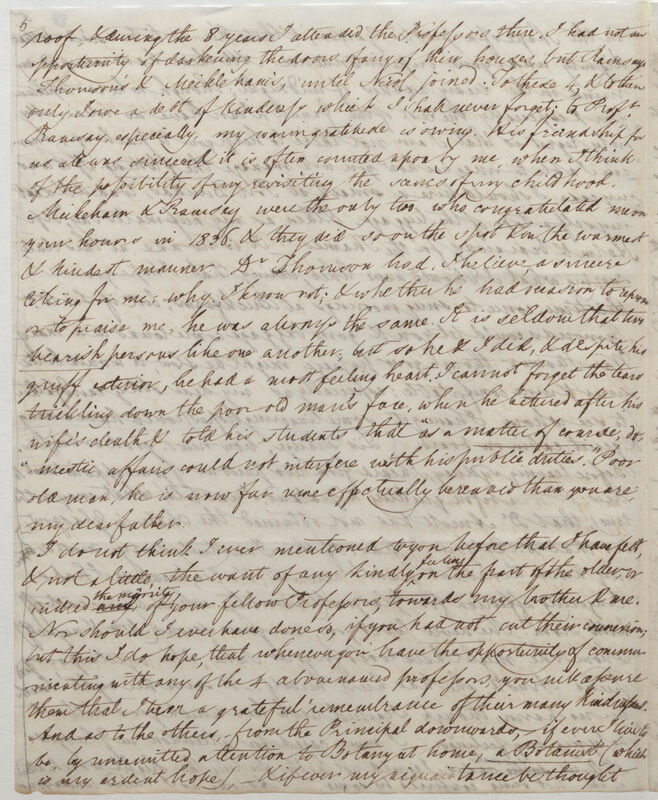 5
proof, & during the 8 years I attended the Professors there, I had not an
opportunity of darkening the doors of any of their houses but Ramsay's
Thomson's & Meikleham's, until Nicol joined. To these 4, & to them
only, I owe a debt of kindness which I shall never forget; to Profr
Ramsay especially, my warm gratitude is owing. His friendship for
us all was sincere & it is often counted upon by me, when I think
of the possibility of my revisiting the scenes of my childhood.
Meikleham & Ramsay were the only two who congratulated me on
your honors in 1836 & they did so on the spot & in the warmest
& kindest manner Dr Thomson had, I believe, a sincere
liking for me; why, I know not; & whether he had reason to reprove
or to praise me, he was always the same. It is seldom that two
bearish persons like one another, but so he & I did, & despite his
gruff exterior, he had a most feeling heart. I cannot forget the tears
trickling down the poor old man's face, when he returned after his
wife's death & told his students that "as a matter of course, do-
"mestic affairs could not interfere with his public duties." Poor
old man, he is now far more effectually bereaved than you are,
my dear father.
I do not think I ever mentioned to you before that I have felt,
& not a little, the want of any kindly feeling on the part of the older, or
indeed the majority of your fellow Professors, towards my brother & me.
Nor should I ever have done so, if you had not cut their connexion;
but this I do hope, that whenever you have the opportunity of commu-
nicating with any of the 4 above named professors, you will assure
them that I bear a grateful remembrance of their many kindnesses.
And as to the others, from the Principal downwards, — if ever I live to
be, by unremitted attention to Botany at home, a Botanist (which
is my ardent hope), — & if ever my acquaintance be thought